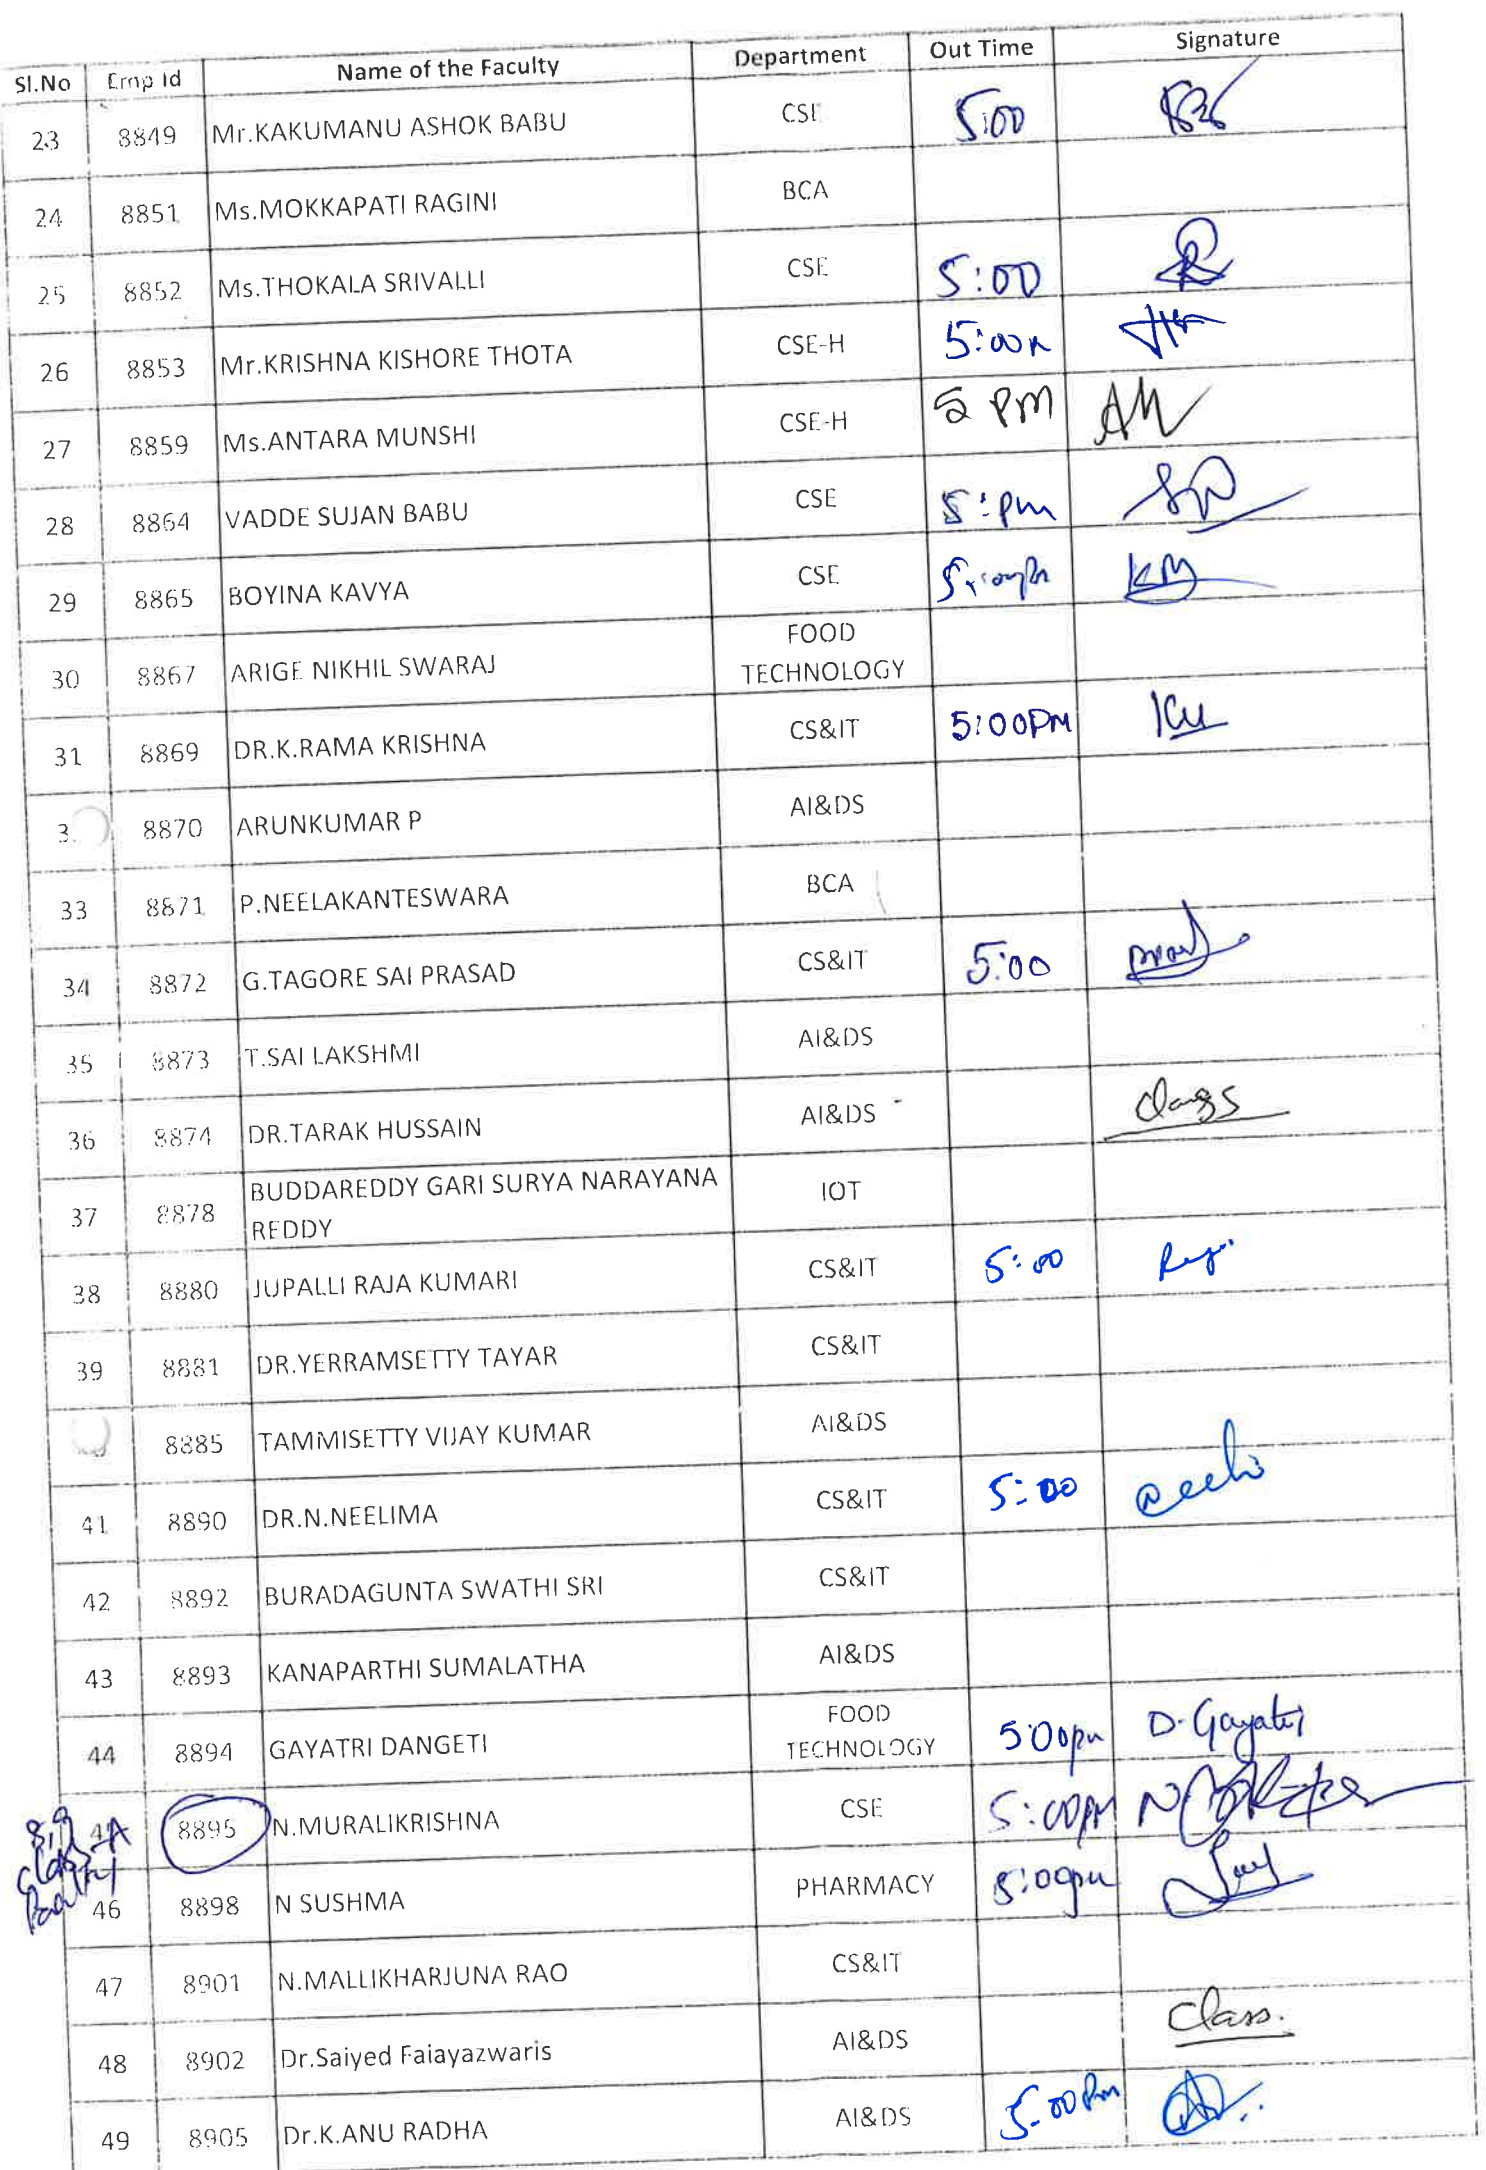 Sl.No Emp Id Name of the Faculty Department Out Time Signature
23 8849 Mr.KAKUMANU ASHOK BABU CSE 5:00
24 8851 Ms.MOKKAPATI RAGINI BCA
25 8852 Ms.THOKALA SRIVALLI CSE 5:00
26 8853 Mr.KRISHNA KISHORE THOTA CSE-H 5:00
27 8859 Ms.ANTARA MUNSHI CSE-H 5 PM AM
28 8864 VADDE SUJAN BABU CSE 5:pm
29 8865 BOYINA KAVYA CSE
30 8867 ARIGE NIKHIL SWARAJ FOOD
TECHNOLOGY
31 8869 DR.K.RAMA KRISHNA CS&IT 5:00PM
3 8870 ARUNKUMAR P AI&DS
33 8871 P.NEELAKANTESWARA BCA
34 8872 G.TAGORE SAI PRASAD CS&IT 5:00
35 8873 T.SAI LAKSHMI AI&DS
36 8874 DR.TARAK HUSSAIN AI&DS
37 8878 BUDDAREDDY GARI SURYA NARAYANA IOT
REDDY
38 8880 JUPALLI RAJA KUMARI CS&IT 5:00
39 8881 DR.YERRAMSETTY TAYAR CS&IT
8885 TAMMISETTY VIJAY KUMAR AI&DS
41 8890 DR.N.NEELIMA CS&IT 5:00
42 8892 BURADAGUNTA SWATHI SRI CS&IT
43 8893 KANAPARTHI SUMALATHA AI&DS
44 8894 GAYATRI DANGETI FOOD 5:00pm D.Gayatri
TECHNOLOGY
8895 N.MURALIKRISHNA CSE 5:00PM
46 8898 N SUSHMA PHARMACY 5:00pm
47 8901 N.MALLIKHARJUNA RAO CS&IT
48 8902 Dr.Saiyed Faiayazwaris AI&DS Class.
49 8905 Dr.K.ANU RADHA AI&DS 5:00 Pm